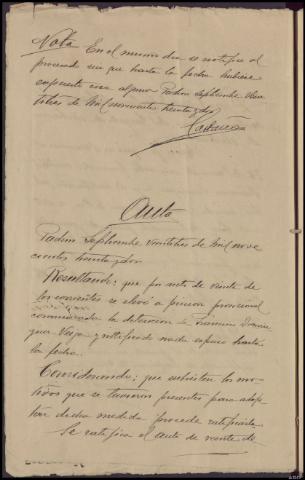 Nota En el mismo dia se notifica al
procesado sin que hasta la fecha hubiese
expuesto cosa alguna Padron Septiembre vein
titres de Mil novecientos treinta y dos
Auto
Padron Septiembre veintitres de Mil nove
cientos treinta y dos
Resultando: que por auto de veinte de
los corrientes se elevó a prision provisional
comunicada la detencion de
y notificado nada expuso hasta
la fecha.
Considerando: que subsisten los mo
tivos que se tuvieron presentes para adop
tar dicha medida procede ratificarla.
Se ratifica el auto de veinte de